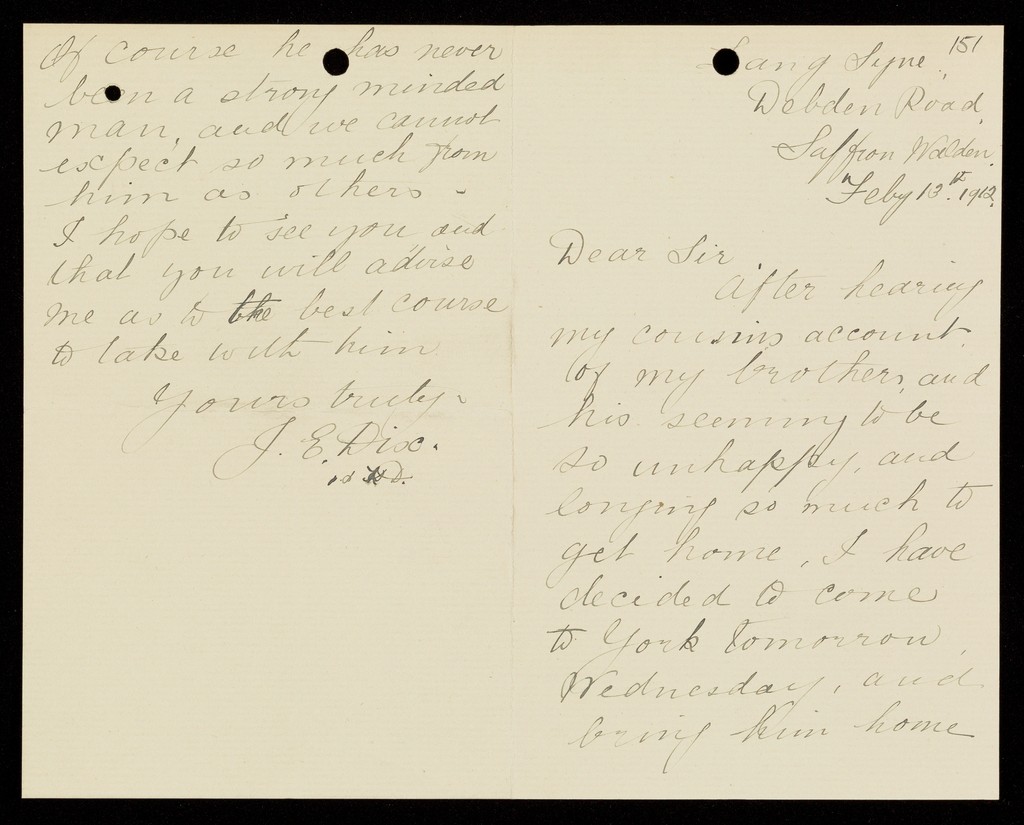 151
Lang Syne,
Debden Road,
Saffron Walden.
Feby 13th. 1912.
Dear Sir,
After hearing
my cousins account
of my brother, and
his seeming to be
so unhappy, and
longing so much to
get home, I have
decided to come
to York tomorrow,
Wednesday, and
bring him home
Of course he has never
been a strong minded
man, and we cannot
expect so much from
him as others -
I hope to see you and
that you will advise
me as to the best course
to take with him
Yours truly.
J. E. Dix.